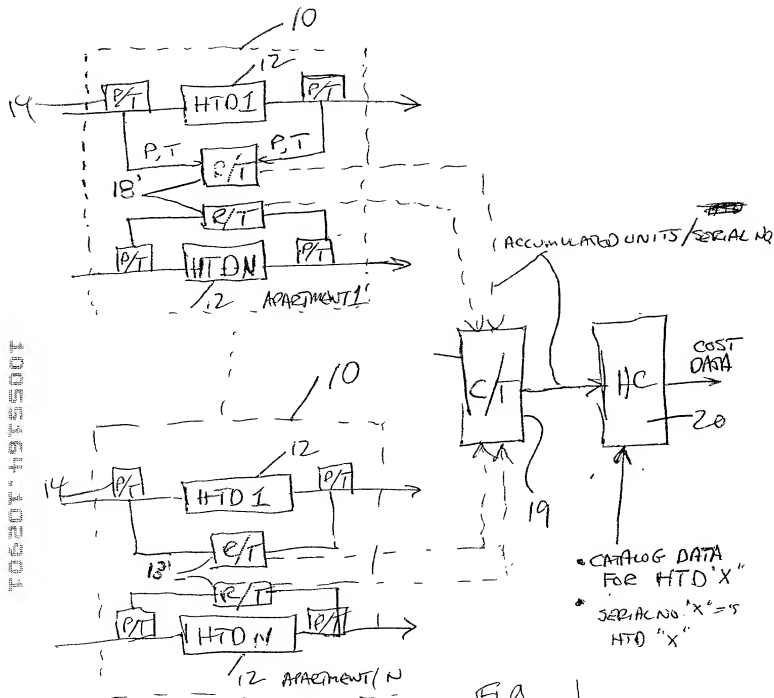 10
12
14
P/T
HTD1
P/T
P, T
P, T
R/T
18'
R/T
P/T
HTDN
P/T
12
APARTMENT 1
ACCUMULATED UNITS/SERIAL NO
C/T
HC
COST
DATA
20
19
10
12
14
P/T
HTD 1
P/T
R/T
18'
R/T
P/T
HTD N
P/T
12
APARTMENT N
• CATALOG DATA
FOR HTD "X"
• SERIAL NO. "X" =
HTD "X"
10055164.102901